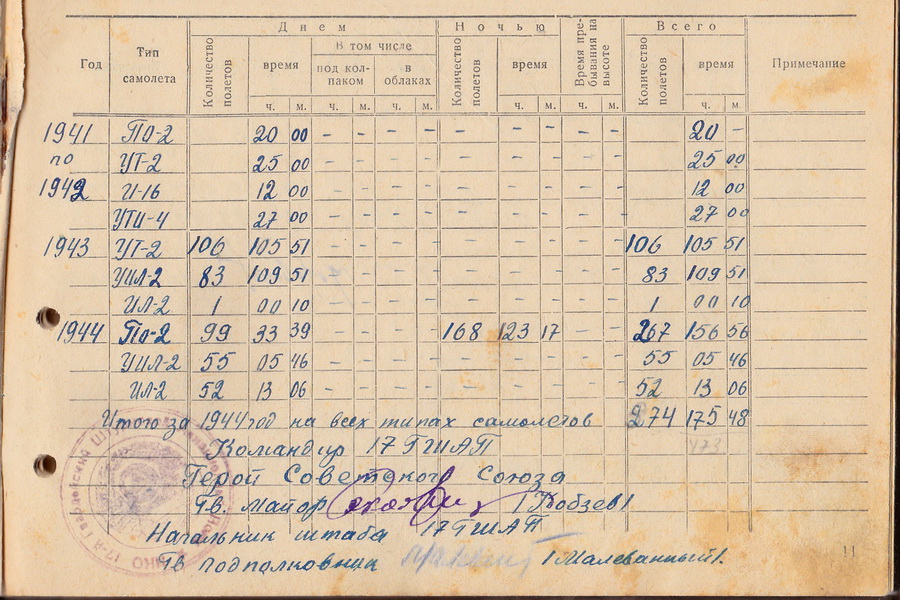 Днем Ночью Всего
Год Тип самолета Количество полетов время В том числе под колпаком в облаках Количество полетов время Время пребывания на высоте Количество полетов время Примечание
ч. м. ч. м. ч. м. ч. м. ч. м.
1941 ПО-2 20 00 - - - - - - - - - 20 -
по УТ-2 25 00 - - - - - - - - - 25 00
1942 И-16 12 00 - - - - - - - - - 12 00
УТИ-4 27 00 - - - - - - - - - 27 00
1943 УТ-2 106 105 51 - - - - - - - - - 106 105 51
УИЛ-2 83 109 51 - - - - - - - - - 83 109 51
ИЛ-2 1 00 10 - - - - - - - - - 1 00 10
1944 По-2 99 33 39 - - - - 168 123 17 - - 267 156 56
УИЛ-2 55 05 46 - - - - - - - - - 55 05 46
ИЛ-2 52 13 06 - - - - - - - - - 52 13 06
Итого за 1944 год на всех типах самолетов 274 175 48
Командир 17 ГШАП
Герой Советского Союза
Гв. майор /Кобзев/
Начальник штаба 17 ГШАП
Гв подполковник /Малеванный/.
11